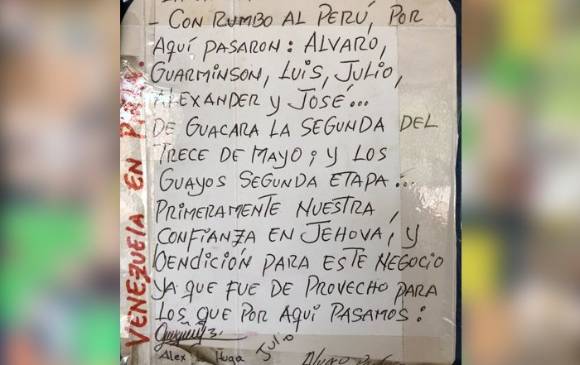 - CON RUMBO AL PERÚ, POR
AQUÍ PASARON: ALVARO,
GUARMINSON, LUIS, JULIO,
ALEXANDER Y JOSÉ...
DE GUACARA LA SEGUNDA DEL
TRECE DE MAYO; Y LOS
GUAYOS SEGUNDA ETAPA...
PRIMERAMENTE NUESTRA
CONFIANZA EN JEHOVÁ, Y
BENDICIÓN PARA ESTE NEGOCIO
YA QUE FUE DE PROVECHO PARA
LOS QUE POR AQUÍ PASAMOS:
Julio
Alex
VENEZUELA EN